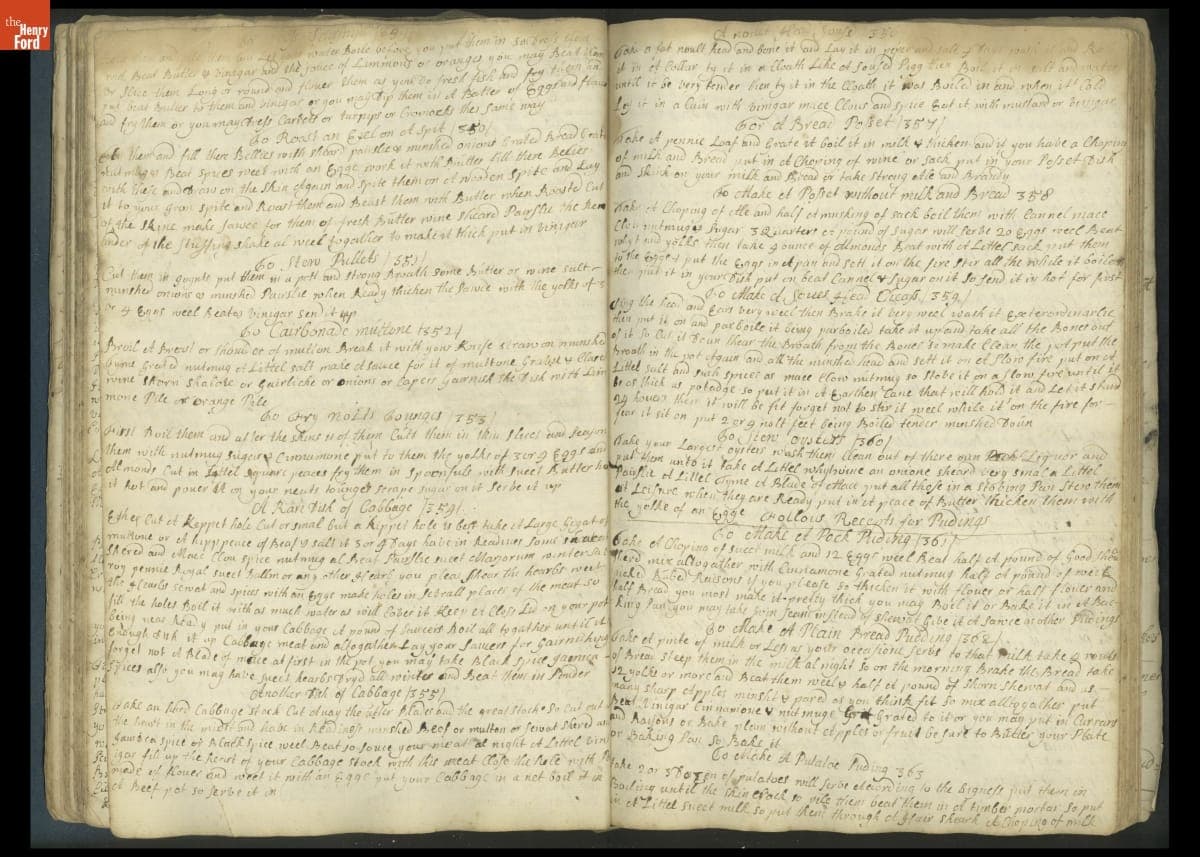 the
Henry
Ford
and Beat Butter & vinegar and the Jouce of Limmons or oranges you may Beat
or slice them Long or round and flower them as you do fresh fish and fry them
put beat Butter to them and vinigar or you may dip them in A Batter of Eggs and flour
and fry them or you may dress Carbets or turnips or the same way
To Roast an Eel on A spit / 350 /
them and fill there Bellies with sheard parslie & minshed onions Grated Bread
nutmug & Beat spices weel with an Egge work it with Butter fill there Bellies
with these and Draw on the skin Again and spite them on A woden Spite and Lay
it to your gron spite and Roast them and Beast them with Butter when Roasted Cut
of the skine make sauce for them of fresh Butter wine sheard Parslie the Rem
ander of the stuffing shake al weel together to make it thick put in vinigar
To Stew Pullets / 351 /
Cut them in Joynts put them in a pott and strong Broath some Butter or wine salt
minshed onions & minshed Parslie when Ready thicken the sauce with the yolks of 3
or 4 Eggs weel Beaten vinigar send it up
To Cairbonade muttone / 352 /
Broil A Breast or shoulder of muttone Break it with your Knife straw on minshed
thyme Grated nutmug A Littel salt made A sauce for it of muttone Gravie & Claret
wine shorn shalote or Gairliche or onions or Capers Garnish the Dish with Lim
mone Pile or orange Pile
To Fry Nolts Tounges / 353 /
First Boil them and after the skins is of them Cutt them in thin slices and season
them with nutmug Suger & Cinnamone put to them the yolks of 3 or 4 Eggs and
Almonds Cut in Littel square peaces fry them in spoonfuls with sweet Butter
it hot and pouer it on your neats tounges scrape sugar on it serve it up
A Rare Dish of Cabbage / 354 /
Ether Cut A Keppet hole Cut or smal but a Kippet hole is best take A Large Gigat of
muttone or A hipp pece of Beaf & salt it 3 or 4 Days have in Readines some
shered and Mace Clou spice nutmug al Beat Parslie sweet Marjorum winter
roy pennie Royal sweet Ballm or any other hearbs you pleas shear the hearbs weet
the hearbs sewat and spices with an Eggs make holes in severall places of the meat so
fill the holes Boil it with as much water as will Cover it Keep A Close Lid on your pot
being near Ready put in your Cabbage A pound of sausers Boil all together until it
Enough dish it up Cabbage meat and altogether Lay your sausers for Gairnishing
forget not A Blade of mace at first in the pot you may take Black Spice
spices also you may have sweet hearbs Dryd all winter and Beat them in Pouder
Another Dish of Cabbage / 355 /
take an hard Cabbage stock Cut away the utter Blades and the great stocke so Cut out
the heart in the midst and have in Readiness minshed Beef or mutton or sewat shered
Jamaca spice or Black spice weel Beat so souce your meat al night A Littel vin
igar fill up the heart of your Cabbage stock with this meat Close the hole with
made of flouer and weet it with an Egge put your Cabbage in a net boil it in
A Beef pot so serve it in
take a fat noult head and bone it and Lay it in
it in A Collar ty it in a Cloath Like A soused Pigg then Boil it in salt and water
until it be very tender then ty it in the Cloath it was Boiled in and when it Cold
Ley it in a Cain with vinigar mace Clous and spice Eat it with mustard or vinigar
For A Bread Posset / 357 /
take A pennie Loaf and Grate it boil it in milk & thicken and if you have a Choping
of milk and Bread put in A Choping of wine or sack put in your Posset Dish
and skink on your milk and Bread or take strong Ale and Brandy
To Make A Posset without milk and Bread 358
take A Choping of Ale and half A mutsking of sack boil them with Cannel mace
Clou nutmugs sugar 3 Quarters A pound of sugar will serve 20 Eggs weel Beat
whyt and yolks then take 4 ounce of Almonds Beat with A Littel sack put them
to the Eggs & put the Eggs in A pan and sett it on the fire ster all the while it boiles
then put it in your Dish put on beat Cannel & sugar on it so send it in hot for first
To Make A Soues Head Cheas / 359 /
sing the head and Ears very weel then Brake it very weel wash it Exterordenarlie
then put it on and parboile it being parboiled take it up and take all the Bones out
of it so Cut it Doun shear the Broath from the Bones so make Clean the pot put the
Broath in the pot Again and all the minshed head and sett it on A slow fire put on A
Littel salt and such spices as mace Clow nutmug so stobe it on a slow fire until it
be as thick as potadge so put it in A Earthen Cane that will hold it and Let it stand
24 hours then it will be fit forget not to stir it weel while it on the fire for
fear it sit on put 2 or 4 nolt feet being Boiled tender minshed Doun
To Stew oysters / 360 /
take your Largest oysters wash them clean out of there own Liquor and
put them unto it take A Littel whyt wine an onione sheard very smal a Littel
Parslie A Littel Tyme A Blade of Mace put all these in a stobing Pan Stew them
at Leisure when they are Ready put in A peace of Butter thicken them with
the yolke of an Egge
Follous Receits for Pudings
To Make A Pock Puding / 361 /
take A Choping of sweet milk and 12 Eggs weel Beat half A pound of Good
sherd mix altogather with Cinnamone Grated nutmug half A pound of weel
picked Rubed Reasons if you please so thicken it with flower or half flower and
half Bread you most make it pretty thick you may Boil it or Bake it in A Bac
King Pan you may take som Jeani instead of shewat Give it A sawce as other Pudings
To Make A Plain Bread Pudding / 362 /
take A pinte of milk or Less as your occasions serbs to that milk take 4 rouls
of Bread steep them in the milk al night so on the morning Brake the Bread take
12 yolks or more and Beat them weel & half A pound of shorn shewat and as
many sharp Apples minsht & pared as you think fit so mix alltogather put
Beat vinigar Cinnamone & nutmugs Grated to it or you may put in Currans
and Rayons or Bake plum without Apples or fruit be sure to Butter your Plate
or Baking Pan so Bake it
To Make A Patatoe Puding 363
take 2 or 3 Dozen of patatoes will serve Acording to the Bigness put them in
Boiling until the skin Crack so pile them beat them in A timber mortar so put
in A Littel sweet milk so put them through A Hair shearch A Choping of milk